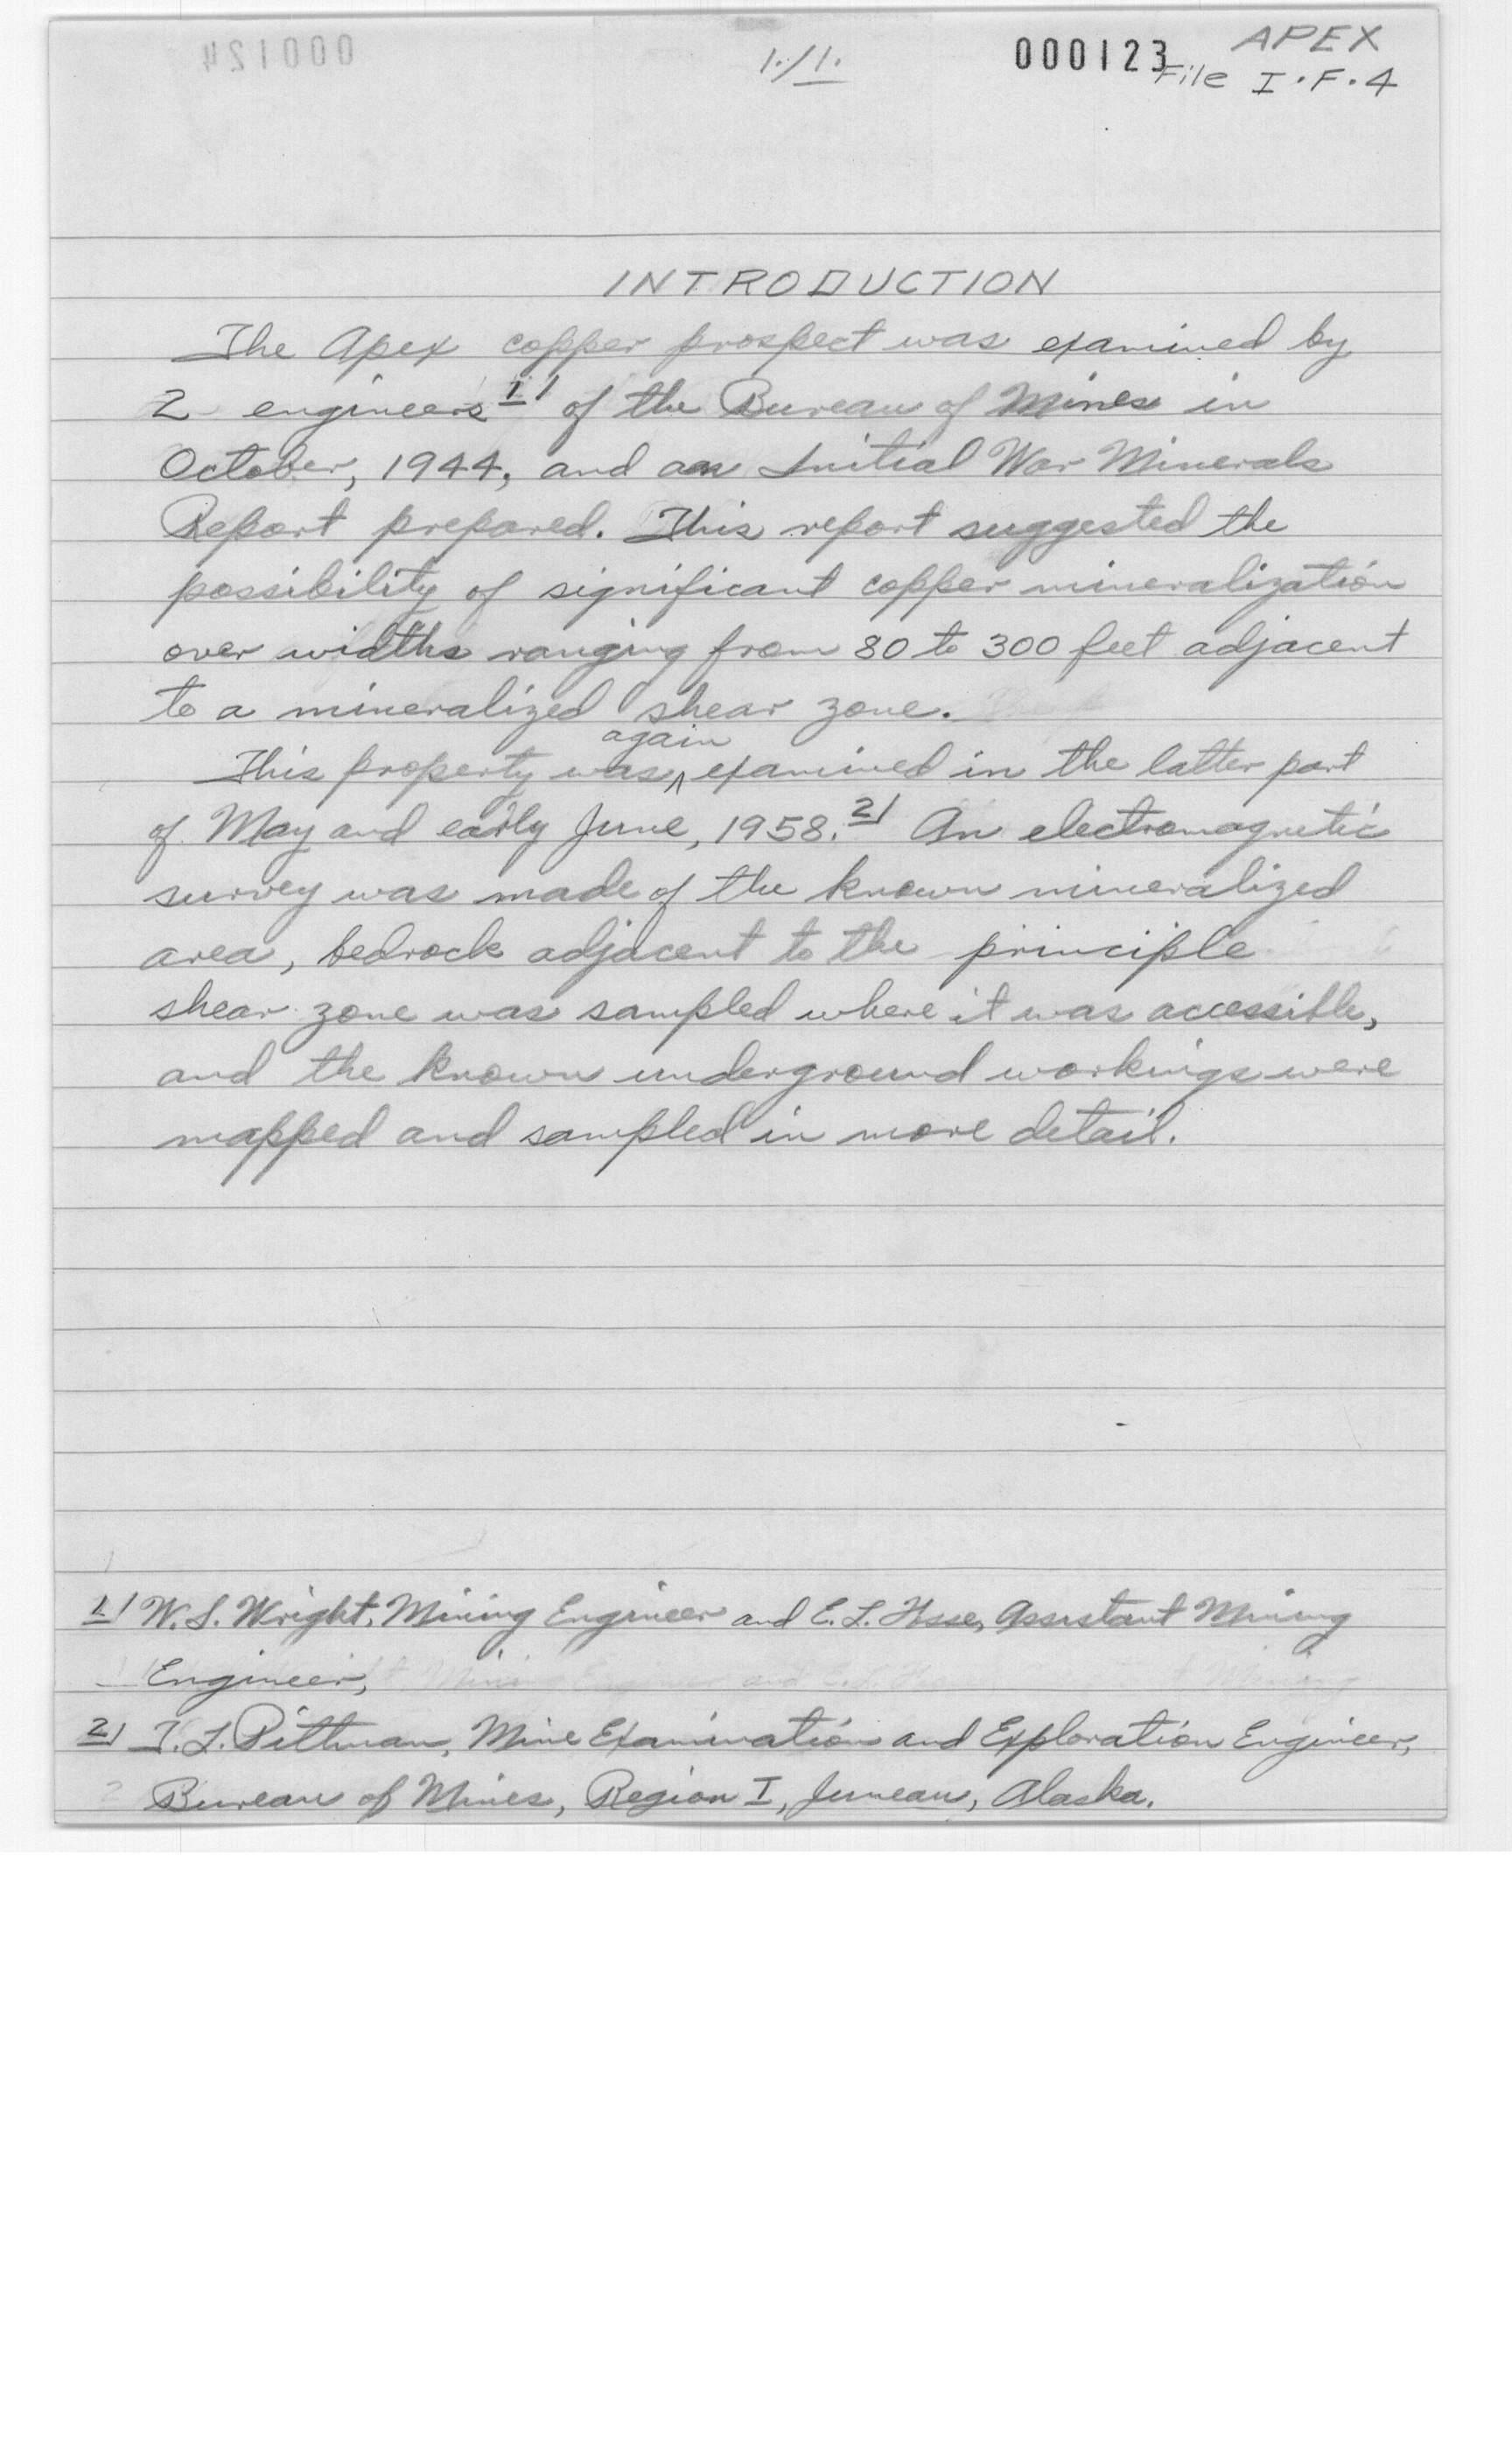 000124
1./1.
000123
APEX
File I.F.4
INTRODUCTION
The Apex copper prospect was examined by
2 engineers 1/ of the Bureau of Mines in
October, 1944, and an Initial War Minerals
Report prepared. This report suggested the
possibility of significant copper mineralization
over widths ranging from 80 to 300 feet adjacent
to a mineralized shear zone.
again
This property was ^ examined in the latter part
of May and early June, 1958. 2/ An electromagnetic
survey was made of the known mineralized
area, bedrock adjacent to the principle
shear zone was sampled where it was accessible,
and the known underground workings were
mapped and sampled in more detail.
1/ W.S. Wright, Mining Engineer and E.L. Assistant Mining
Engineer,
2/ T.L. Pittman, Mine Examination and Exploration Engineer,
Bureau of Mines, Region I, Juneau, Alaska.